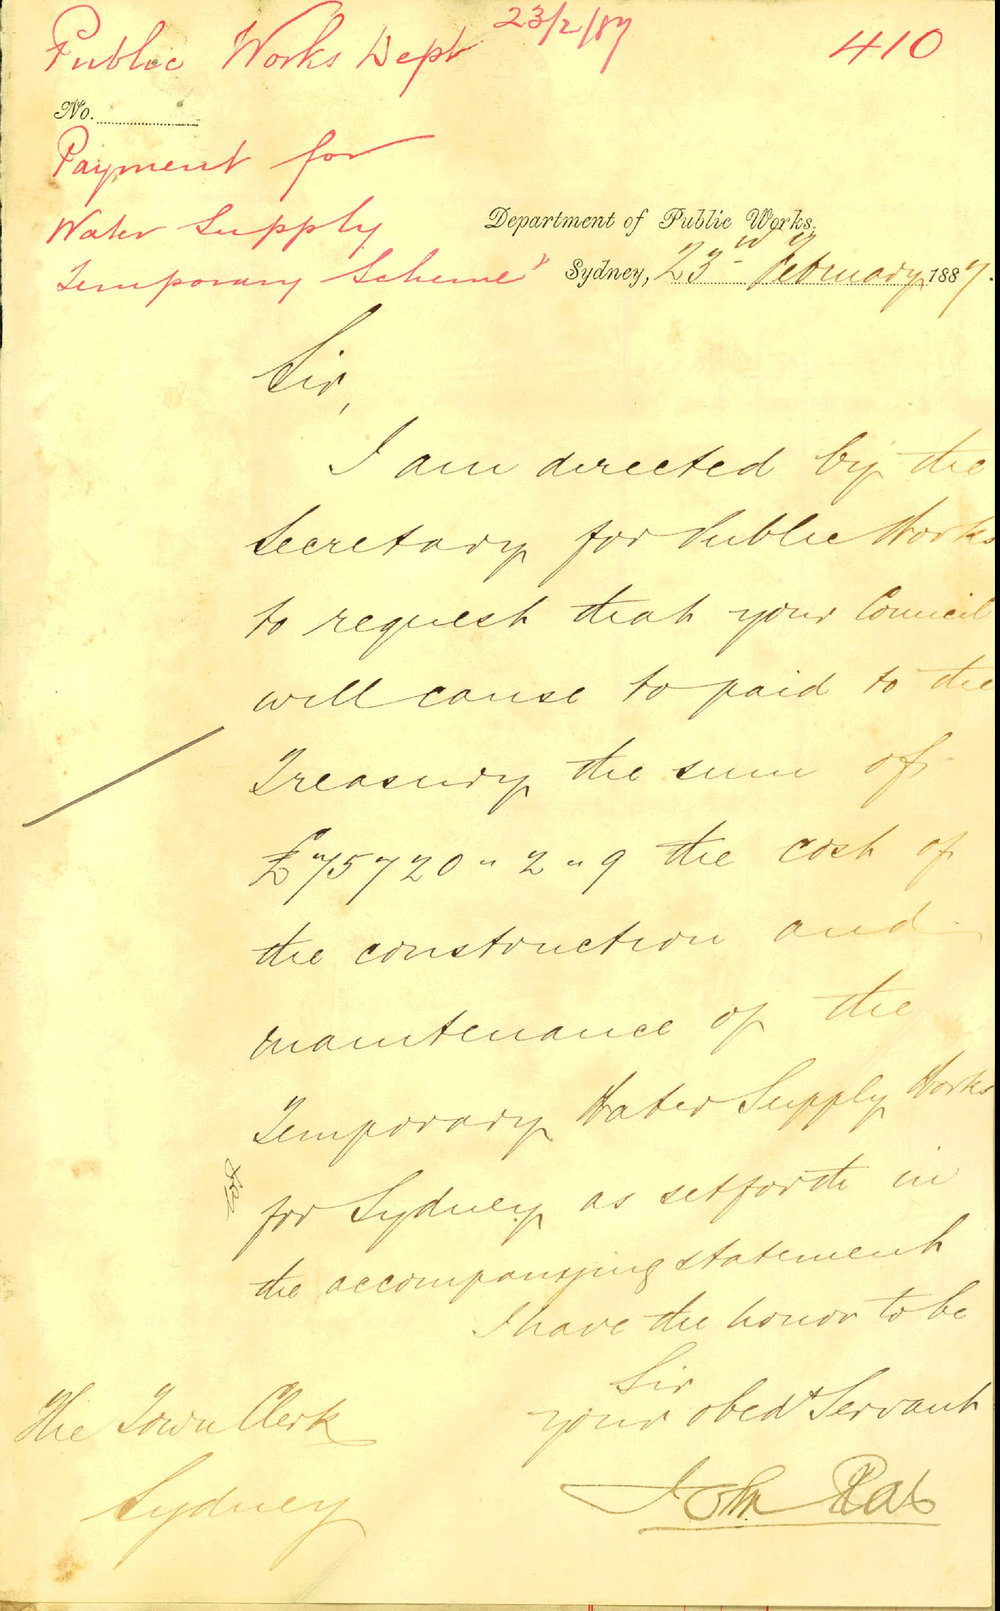 Public Works Dept 23/2/87
410
No.
Payment for
Water Supply
Temporary Scheme"
Department of Public Works,
Sydney, 23rd February 1887.
Sir,
I am directed by the
Secretary for Public Works
to request that your Council
will cause to paid to the
Treasury the sum of
£75720 " 2 " 9 the cost of
the construction and
maintenance of the
Temporary Water Supply Works
for Sydney as setforth in
the accompanying statement
I have the honor to be
Sir
your obedt Servant
John Rae
The Town Clerk
Sydney